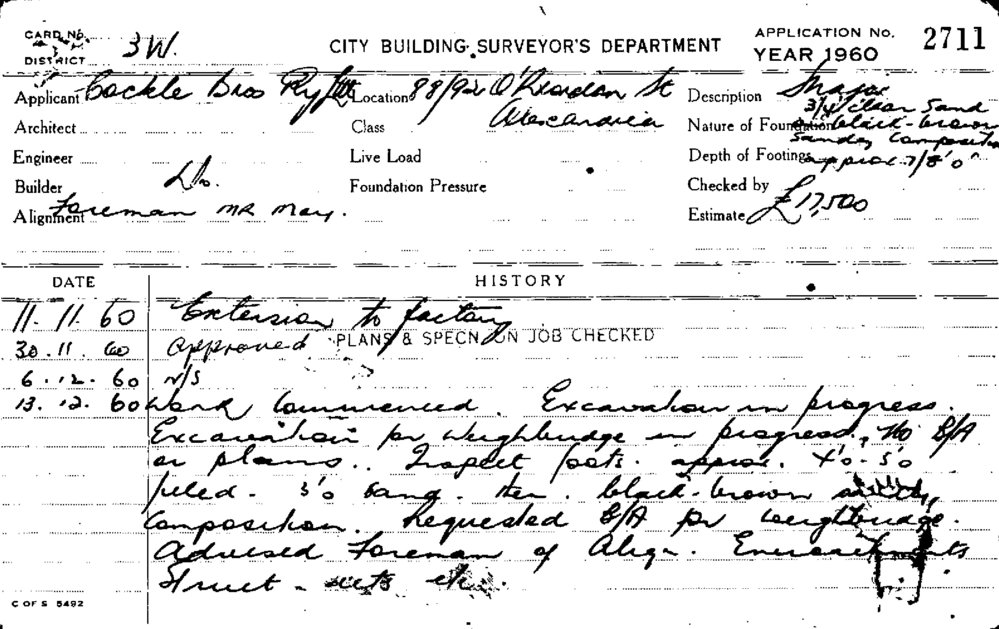 CARD No.
DISTRICT 3W.
CITY BUILDING SURVEYOR'S DEPARTMENT
APPLICATION No. 2711
YEAR 1960
Applicant Cockle Bros Pty Ltd Location 88/92 O'Riordan St Alexandria
Architect
Class
Engineer
Live Load
Builder Do.
Foundation Pressure
Alignment Foreman MR May.
Description
Nature of Foundation 3/4 clear sand black-brown sandy composition
Depth of Footings approx. 7/8'0"
Checked by
Estimate £17,500
DATE HISTORY
11. 11. 60 Extension to factory
30. 11. 60 Approved PLANS & SPECN ON JOB CHECKED
6. 12. 60 N/S
13. 12. 60 Work Commenced. Excavation in progress.
Excavation for Weighbridge in progress, No B/A
or plans.. Inspect foots. approx. 4'0 - 5'0
filled - 3'0 sand. then. black-brown
Composition. Requested B/A for weighbridge.
Advised Foreman of Align. Encroachments
Struct - etc.
C OF S 5492